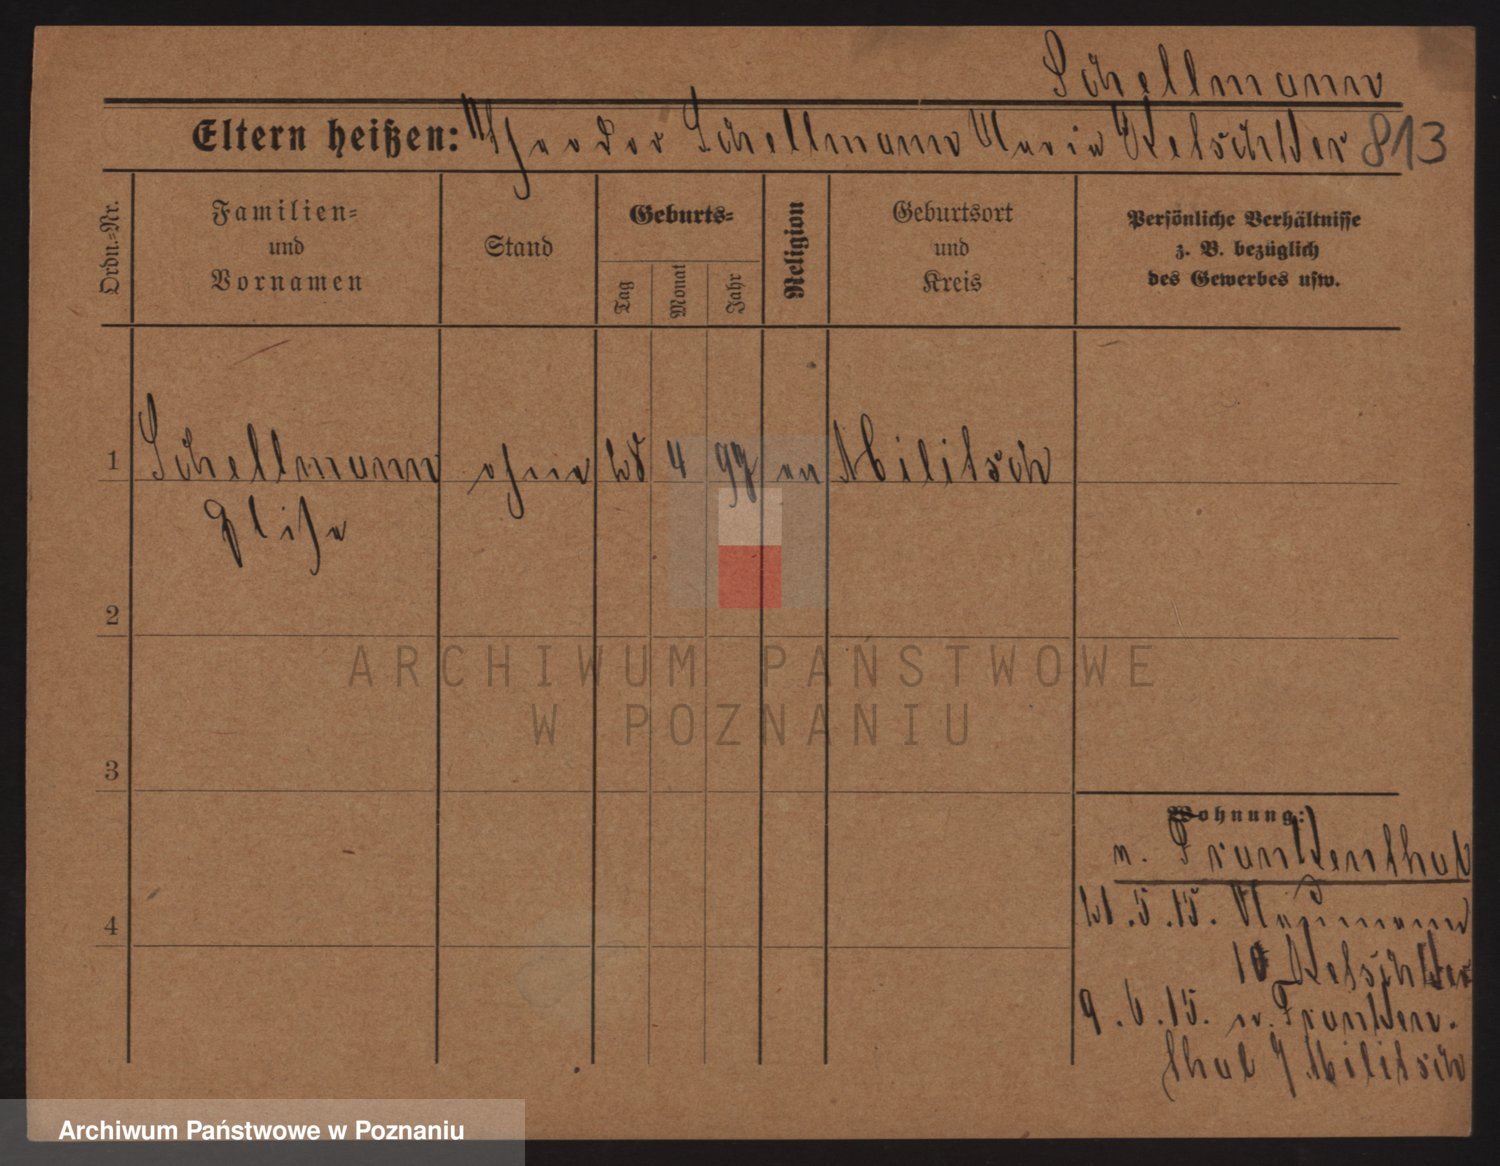 Schellmann
Eltern heißen: Theodor Schellmann Maria Ketschker 813
Ordn.-Nr.
Familien-
und
Vornamen
Stand
Geburts-
Tag
Monat
Jahr
Religion
Geburtsort
und
Kreis
Persönliche Verhältnisse
z. B. bezüglich
des Gewerbes usw.
1 Schellmann ohne 28 4 99 ev Militsch
Elise
2
3
4
Wohnung:
n. Frankenthal
21.5.15. Naumann
10 Ketschker
9.6.15. n. Franken-
thal Militsch
ARCHIWUM PAŃSTWOWE
W POZNANIU
Archiwum Państwowe w Poznaniu